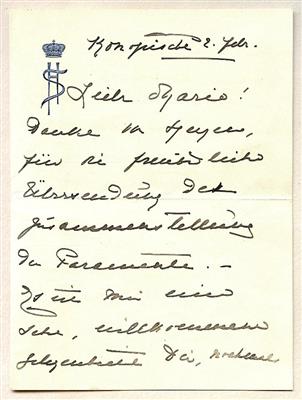 Konopischt 2. Febr.
Liebe Marie!
Danke von Herzen,
für die freundliche
Übersendung der
Zusammenstellung
der Paramente. –
Es ist mir eine
sehr, willkommene
Gelegenheit Dir, nochmals